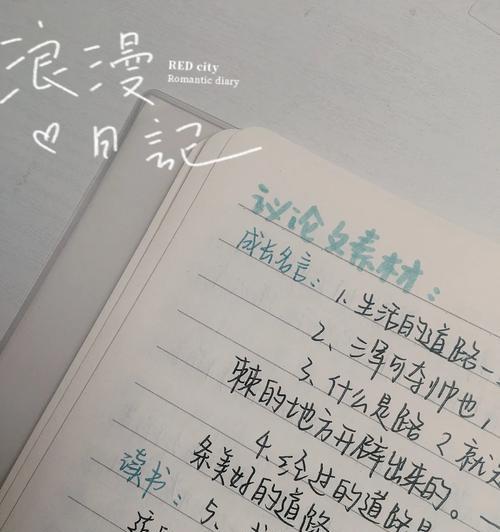 浪漫
RED city
Romantic diary
日記
议论文素材：
成长名言：1、生活的道路一
2、三军可夺帅也，
3、什么是路？就
棘的地方开辟出来的。一
4、经过的道路
条美好的道路
读书：5、